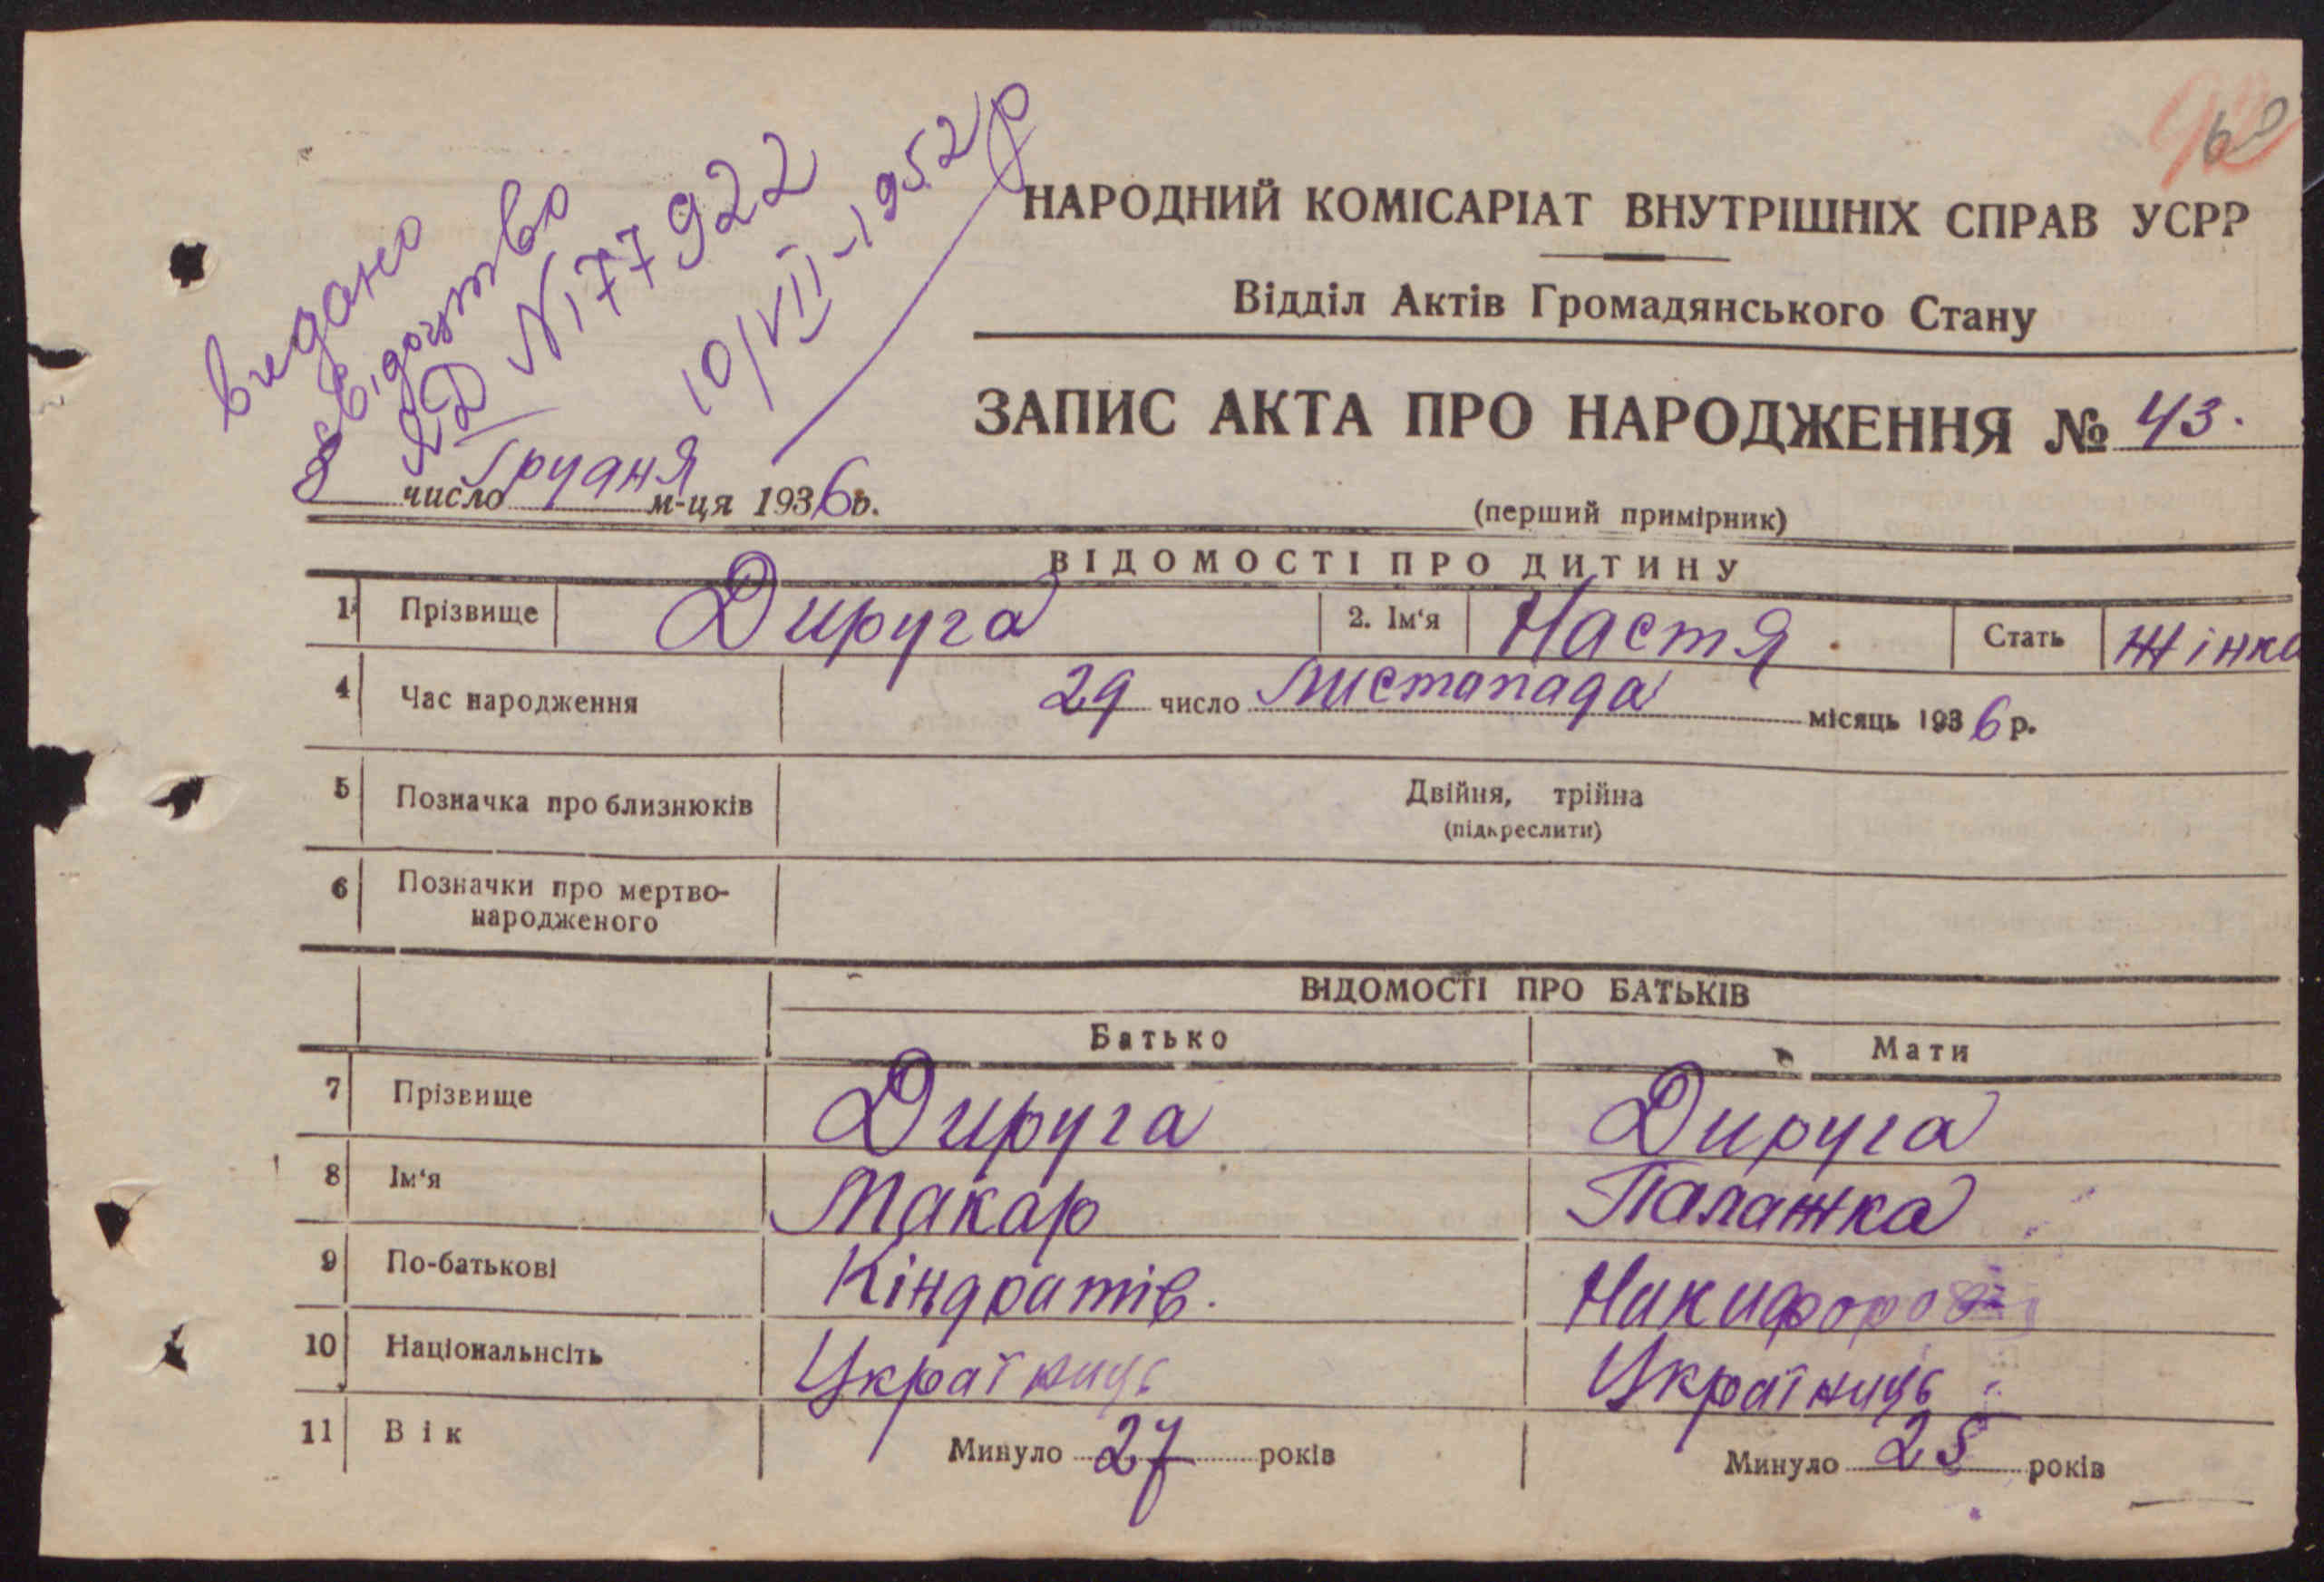 видано
свідоцтво
ЯД N177922
10/VII-1952р
НАРОДНИЙ КОМІСАРІАТ ВНУТРІШНІХ СПРАВ УСРР
Відділ Актів Громадянського Стану
ЗАПИС АКТА ПРО НАРОДЖЕННЯ № 43.
8 число Грудня м-ця 1936 р.
(перший примірник)
ВІДОМОСТІ ПРО ДИТИНУ
1 Прізвище Дируга 2. Ім‘я Настя. Стать Жінка
4 Час народження 29 число Листопада місяць 1936 р.
5 Позначка про близнюків Двійня, трійна
(підкреслити)
6 Позначки про мертво-
народженого
ВІДОМОСТІ ПРО БАТЬКІВ
Батько Мати
7 Прізвище Дируга Дируга
8 Ім‘я Макар Палажка
9 По-батькові Кіндратів.
10 Національнсіть Українць Українць
11 Вік Минуло 27 років Минуло 25 років